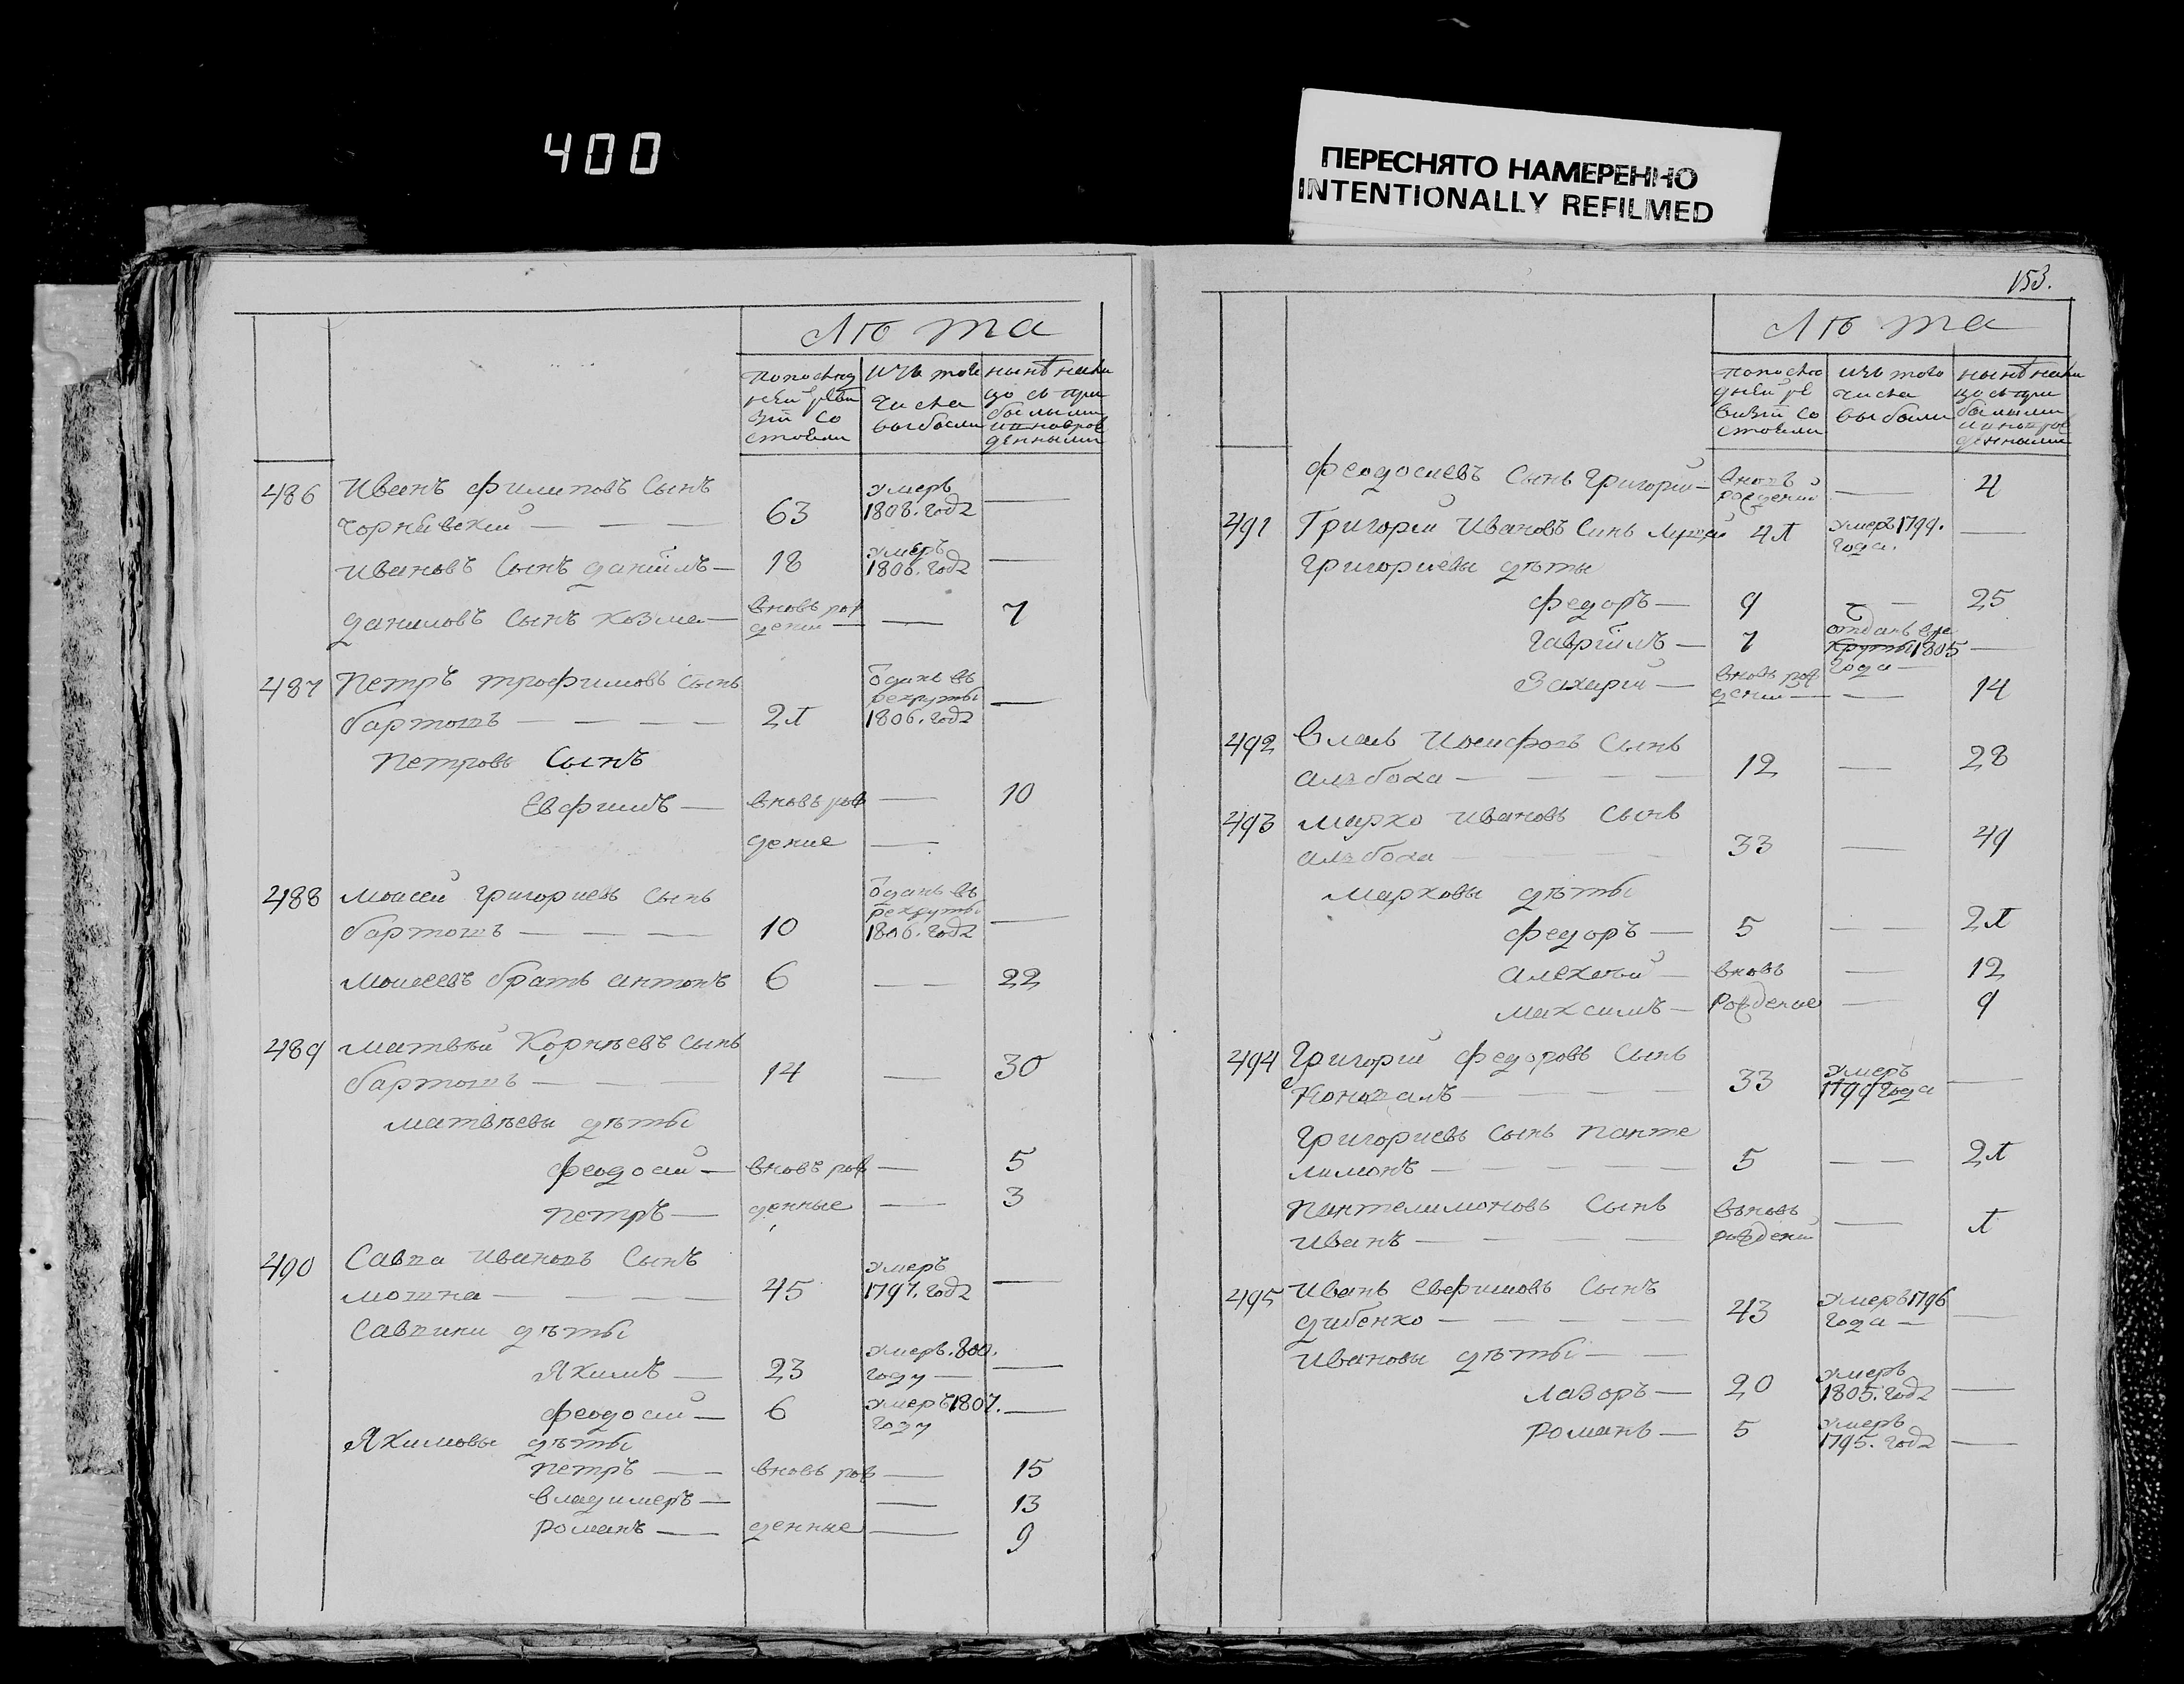 400
ПЕРЕСНЯТО НАМЕРЕННО
INTENTIONALLY REFILMED
Лѣта
попослед
ней реви
зіи со
стояли
изъ того
числа
выбыли
нынѣ нали
цо съ при
былыми
и новорож
денными
486 Иванъ Филиповъ Сынъ
63 умеръ 1808. год2 —
Ивановъ Сынъ Даніилъ — 18 умеръ 1806. год2 —
Даниловъ Сынъ Козма — вновь рож
дени — — 7
487 Петръ Трофимовъ Сынъ
бартошъ — — — — 24 ѿданъ въ рекруты 1806. год2 —
Петровъ Сынъ
Евфимъ — вновь рож — 10
дение —
488 Моисей Григориевъ Сынъ
бартошъ — — — 10 ѿданъ въ рекруты 1806. год2 —
Моисеевъ братъ антонъ 6 — — 22
489 Матвѣй Корнѣевъ Сынъ
бартошъ — — — 14 — 30
Матвѣевы дѣты
Феодосий — вновь рож — 5
Петръ — денные — 3
490 Савва Ивановъ Сынъ
мошна — — — — 45 умеръ 1797. год2 —
Саввини дѣты
Якимъ — 23 умеръ. 800. году — —
Феодосий — 6 умеръ 1807. году —
Якимовы дѣты
Петръ — — вновь рож — 15
Владимеръ — — 13
Романъ — — денные — 9
153.
Лѣта
попосле
дней ре
визіи со
стояли
изъ того
числа
выбыли
нынѣ нали
цо съ при
былыми
и новорож
денными
Феодосиевъ Сынъ Григорий — вновь
рождений — 4
491 Григорий Ивановъ Синъ 44 умеръ 1799. Года. —
Григориевы дѣты
Федоръ — 9 — — 25
Гавріилъ — 7 отданъ в ре
круты 1805 Года — —
Захарий — вновь рож
дени — — 14
492 Власъ Иосифовъ Сынъ
— — — — 12 — 28
493 Марко Ивановъ Сынъ
33 — 49
Марковы дѣты
Федоръ — 5 — — 24
Алексѣй — вновь — 12
Максимъ — Рождение — 9
494 Григорий Федоровъ Сынъ
Коновалъ — — — — 33 умеръ 1799 Года —
Григориевъ Сынъ Панте
лимонъ — — — — 5 — — 24
Пантелимоновъ Сынъ вьновь
Иванъ — — — — рождени — 4
495 Иванъ Евфимовъ Сынъ
дибенко — — — — 43 умеръ 1796 Года — —
Ивановы дѣты — —
Лазоръ — 20 умеръ 1805. год2 —
Романъ — 5 умеръ 1795. год2 —